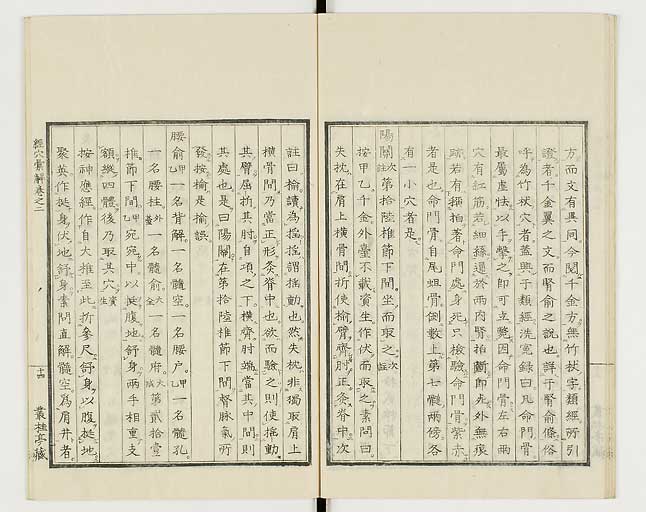 方而文有異同今閱千金方無竹杖字類經所引
證者千金翼之文而腎俞之說也詳于腎俞條俗
呼為竹杖穴者蓋興于類經洗冤録曰凡命門骨
最屬虛怯以手擊之即可立斃因命門骨左右兩
穴有紅筋若細絲通於兩肉腎拍斷即死外無痕
跡若有㨄拍著命門處身死只檢驗命門骨紫赤
者是也命門骨自尾蛆骨倒數上第七髓兩傍各
有一小穴者是
陽關 次註 第拾陸椎節下間坐而取之 次註
按甲乙千金外臺不載資生作伏而取之素問曰
失抌在肩上橫骨間折使榆臂齊肘正灸脊中次
註曰榆讀為搖搖謂搖動也然失抌非獨取肩上
橫骨間乃當正形灸脊中也欲而驗之則使搖動
其臂屈折其肘自項之下橫齊肘端當其中間則
其處也是曰陽關在第拾陸椎節下間督脉氣所
發按榆是揄誤
腰俞 甲乙 一名背解一名髓空一名腰户 甲乙 一名髓孔
一名腰柱 外臺 一名髓俞 大全 一名髓府 大成 第貳拾壹
椎節下間 甲乙 宛宛中以挺腹地舒身兩手相重支
額縱四體後乃取其穴 資生
按神應經作自大椎至此折參尺舒身以腹挺地
聚英作挺身伏地舒身素問直解髓空為肩井者
經穴彙解卷之二
十四
叢桂亭藏